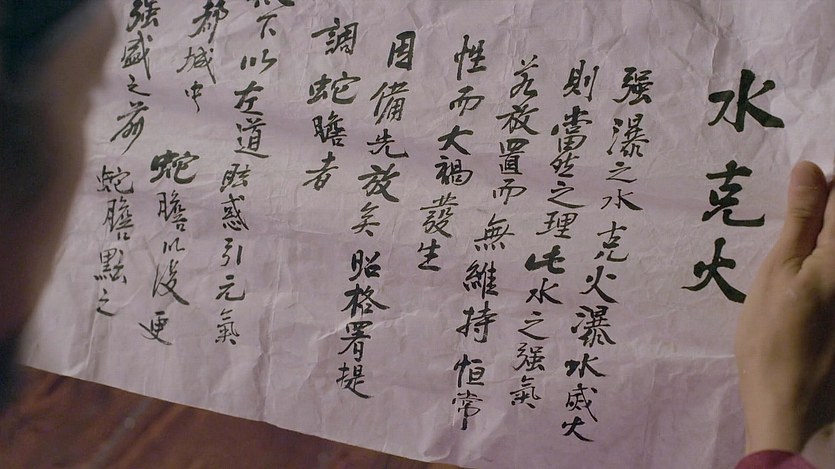 水克火
强瀑之水克火瀑水威火
則當然之理此水之强氣
若放置而無維持恒常
性而大禍發生
因備先放矣昭格署提
調蛇膽者
下以左道眩惑引元氣
都城中蛇膽以後更
强盛之前蛇膽點之